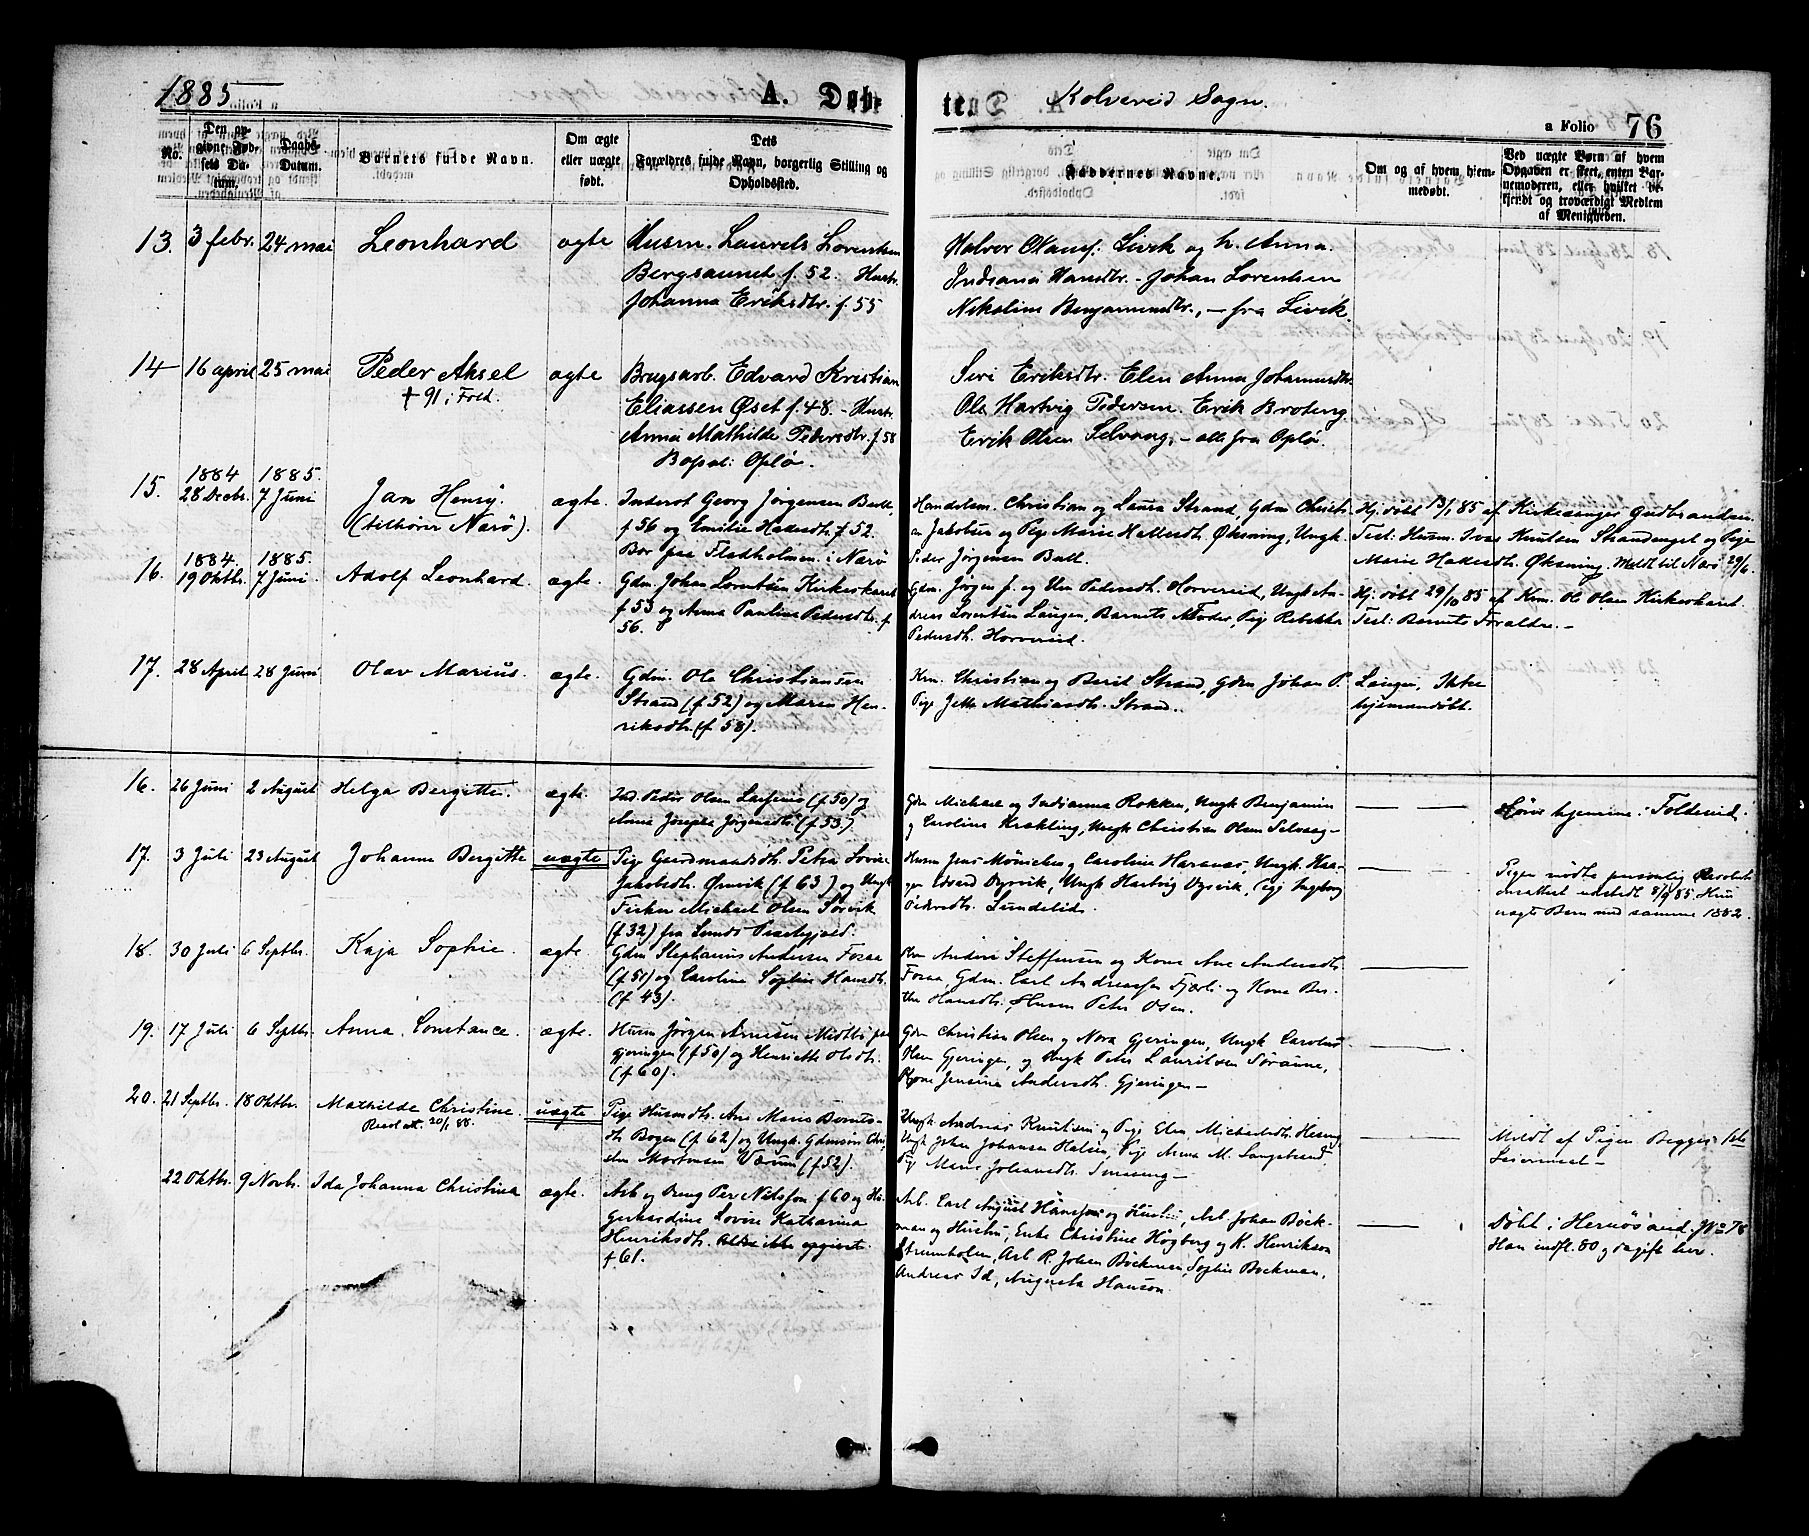 1885
A. Døb-
te.
Kolvereid Sogn.
a Folio 76
No.
Den opgivne Fødsels Datum.
Daabs-Datum.
Barnets fulde Navn.
Om ægte eller uægte født.
Dets Forældres fulde Navn, borgerlig Stilling og Opholdssted.
Faddernes Navne.
Om og af hvem hjemmedøbt.
Ved uægte Børn af hvem Opgaven er skeet, enten Barnemoderen, eller hvilket bekjendt og troværdigt Medlem af Menigheden.
13. 3 febr. 24 mai Leonhard ægte Husm. Laurels Lorentsen
Bergsaunet f. 52. Hustr.
Johanna Eriksdtr. f 55
Halvor Olausf. Livik og h. Anna.
Indiana Hansdtr. - Johan Lorentsen
Nikoline Benjaminsdtr., - fra Livik.
14 16 april 25 mai Peder Aksel ægte Brugsarb. Edvard Kristian
† 91 i Fold.
Eliassen Øset f. 48. - Hustr.
Anna Mathilde Pedersdtr. f 58
Bopæl: Oplø.
Siri Eriksdtr. Elen Anna Johannesdtr.
Ole Hartvig Pedersen. Erik Broteng.
Erik Olsen Selvaag, - alle fra Oplø.
15. 1884 28 Decbr. 1885. 7 Juni Jan Henry. ægte. Inderst Georg Jørgensen Bull
(tilhører Nærø).
f 56 og Emilie Hallesdtr. f 52.
Bor paa Fladholmen i Nærø
Handelsm. Christian og Laura Strand, Gdm Christian
Jakobsen og Pige Marie Hallesdt. Øksning, Ungk.
Peder Jørgensen Bull.
Hj. døbt 13/1 85 af Kirkesanger Gudbrandsen.
Test: Husm. Ivar Knutsen Strandenget og Pige
Marie Hallesdt. Øksning. Meldt til Nærø 29/6.
16. 1884. 19 Oktbr. 1885. 7 Juni. Adolf Leonhard. ægte. Gdm. Johan Lorentsen Kirkeskaret
f 53 og Anna Pauline Pedersdtr. f
56.
Gdm. Jørgen J. og Pedersdt. Horvereid, Ungk. An-
dreas Lorentsen Laugen, Barnets Moder, Pige Rebekka
Pedersdt. Horvereid.
Hj. døbt 29/10 85 af Krm. Ole Olsen Kirkeskaret.
Test: Barnets Forældre. -
17. 28 April 28 Juni Olav Marius. ægte. Gdm. Ole Christiansen
Strand (f 52) og Maren Hen-
riksdt. (f 58).
Krm. Christian og Berit Strand, Gdm Johan P. Laugen,
Pige Jette Mathiasdt. Strand.
Ikke
hjemmedøbt.
16. 26 Juni 2 August Helga Bergitte. ægte. Ind. Peder Olsen (f 50) og
Anna Josepha Jørgensdt. (f 53.)
Gdm Michael og Indianna Rokken, Ungk Benjamin
og Caroline Krækling, Ungk Christian Olsen Selvaag -
hjemme i Foldereid.
17. 3 Juli 23 August Johanne Bergitte uægte Pige Gaardmandsdt. Petra Lovise
Jakobsdt. Ørnvik (f 63) og Ungk
Fisker Michael Olsen Sørvik
(f 32) fra Prestegjeld.
Husm Jens og Caroline Haranes, Ungk. Haa-
gen Edvard Dyrvik, Ungk Hartvig Dyrvik, Pige Ingeborg
Pedersdt. Lundelid.
Pigen mødte personlig
udstedt 8/9 85. Hun
uægte Barn med samme 1882.
18. 30 Juli 6 Septbr. Kaja Sophie. ægte. Gdm Stephanus Andersen Fosaa
(f 51) og Caroline Sophie Hansdt.
(f 43).
Krm Anders Steffensen og Kone Ane Andersdt.
Fosaa, Gdm. Carl Andreassen Fjærli og Kone Ber-
the Hansdt. Husm Peter Osen.
19. 17 Juli 6 Septbr. Anna Constance. ægte. Husm Jørgen Arnesen
gjeringen (f 50) og Henriette Olsdt.
(f 60).
Gdm Christian Olsen og Nora Gjeringen, Ungk Carolus
Olsen Gjeringen, og Ungk Peter Lauritsen Sørønne,
Kone Jensine Andersdt. Gjeringen -
20. 21 Septbr. 18 Oktbr. Mathilde Christine. uægte Pige Husmdt. Ane Marie Bernts-
20/1 88.
dt Bogen (f 62) og Ungk. Gdmsøn Chri-
Mortensen Værum (f 52).
Ungk Andreas Knutsen og Pige Elen Michelsdt.
Ungk Johan Johansen Halsen, Pige Anna M. Langstrand,
Pige Marie Johansdt. -
Meldt af Pigen Begges 1ste
Leiermaal -
22 Oktbr. 9 Novbr. Ida Johanna Christina ægte. Arb og Dreng Per Nilsson f 60 og Hu.
Gerhardine Lovise Katharina
Henriksdt. Alder ikke opgivet.
f 61.
Arb. Carl August Hansson og Hustru, Arb Johan Böck-
man og Hustru, Enke Christine Högberg og K. Henrikson
Strumholm, Arb R. Johan Böckman, Sophie Bockman,
Andreas Id, Augusta Hanson.
Døbt i Hernösand. No 78
Han indfl. 80 og gift her.